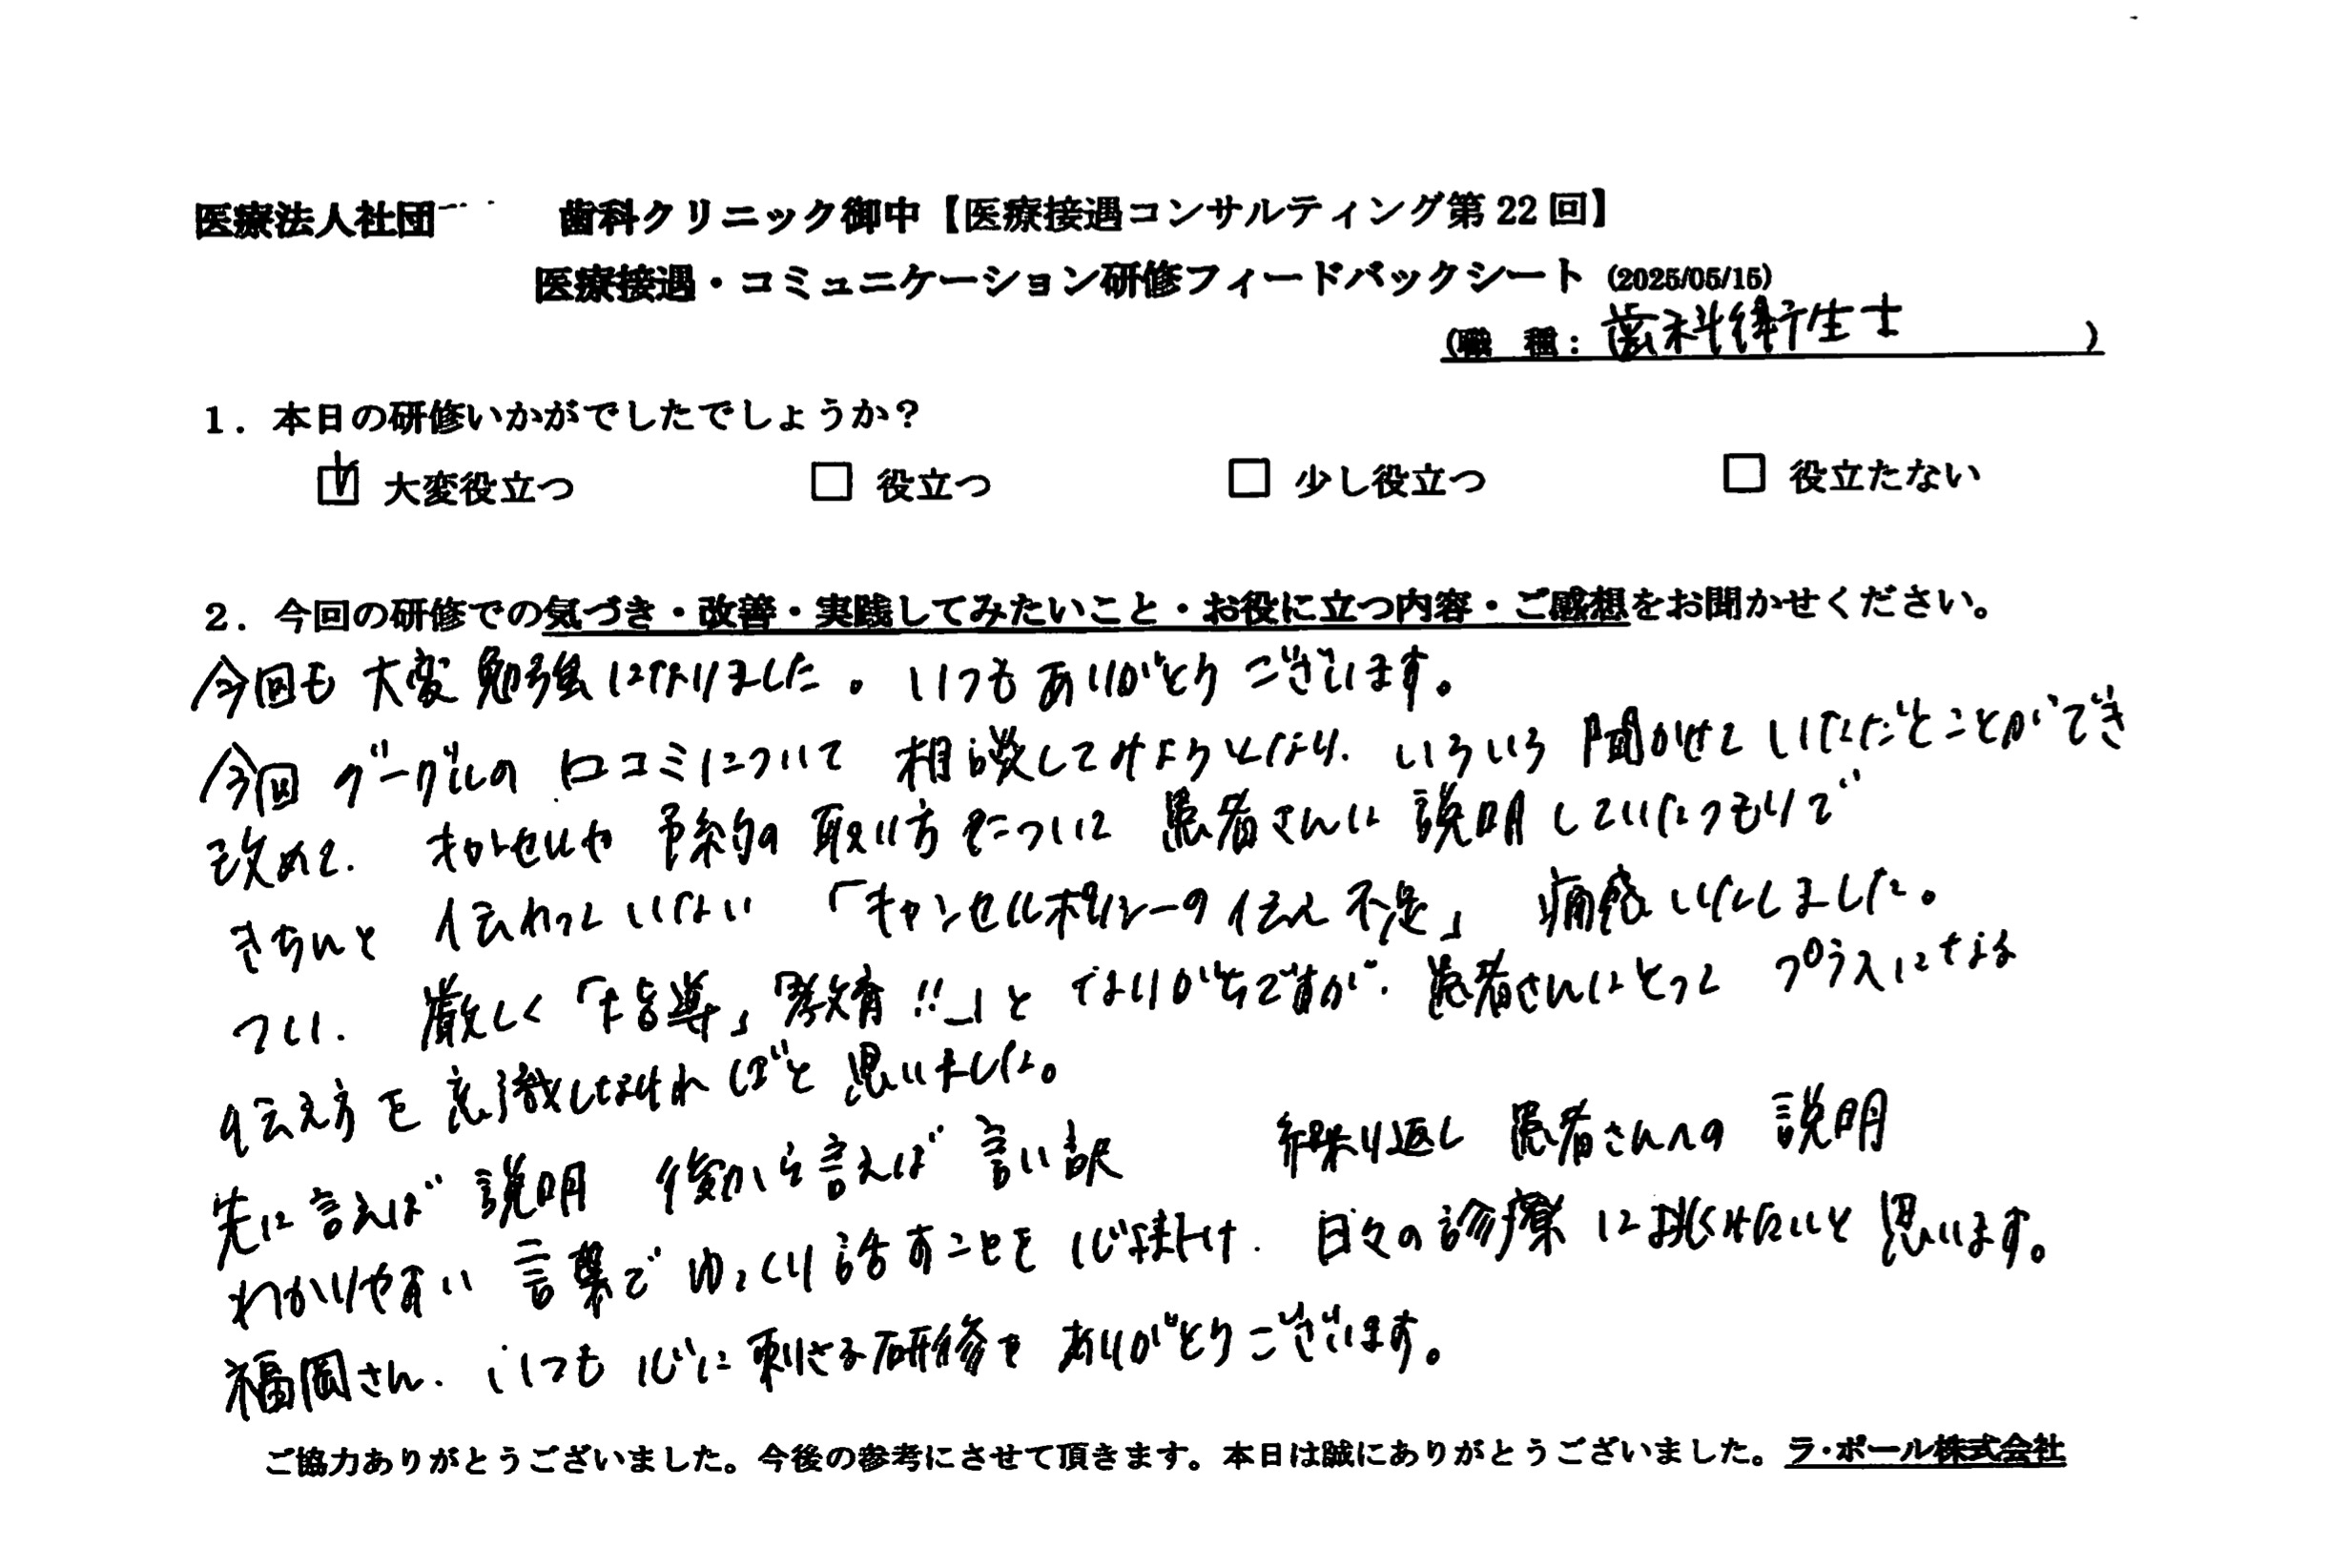 医療法人社団 歯科クリニック御中【医療接遇コンサルティング第22回】
医療接遇・コミュニケーション研修フィードバックシート (2025/05/15)
(職 種: 歯科衛生士 )
1. 本日の研修いかがでしたでしょうか?
☑ 大変役立つ □ 役立つ □ 少し役立つ □ 役立たない
2. 今回の研修での気づき・改善・実践してみたいこと・お役に立つ内容・ご感想をお聞かせください。
今回も 大変 勉強になりました。いつもありがとうございます。
今回 グーグルの 口コミについて 相談してみようとなり、いろいろ 聞かせていただくことができ
改めて、キャンセルや 予約の 取り方について 患者さんに 説明していたつもりで
きちんと 伝わっていない 「キャンセルポリシーの伝え不足」 痛感いたしました。
つい、厳しく「指導」「教育!!」と なりがちですが、患者さんにとって プラスになる
伝え方を 意識しなければと 思いました。
先に言えば 説明 後から言えば 言い訳 繰り返し 患者さんへの 説明
わかりやすい 言葉で ゆっくり話すことを 心掛け、日々の診療に 挑みたいと 思います。
福岡さん、いつも 心に 刺さる研修を ありがとうございます。
ご協力ありがとうございました。今後の参考にさせて頂きます。本日は誠にありがとうございました。ラ・ポール株式会社